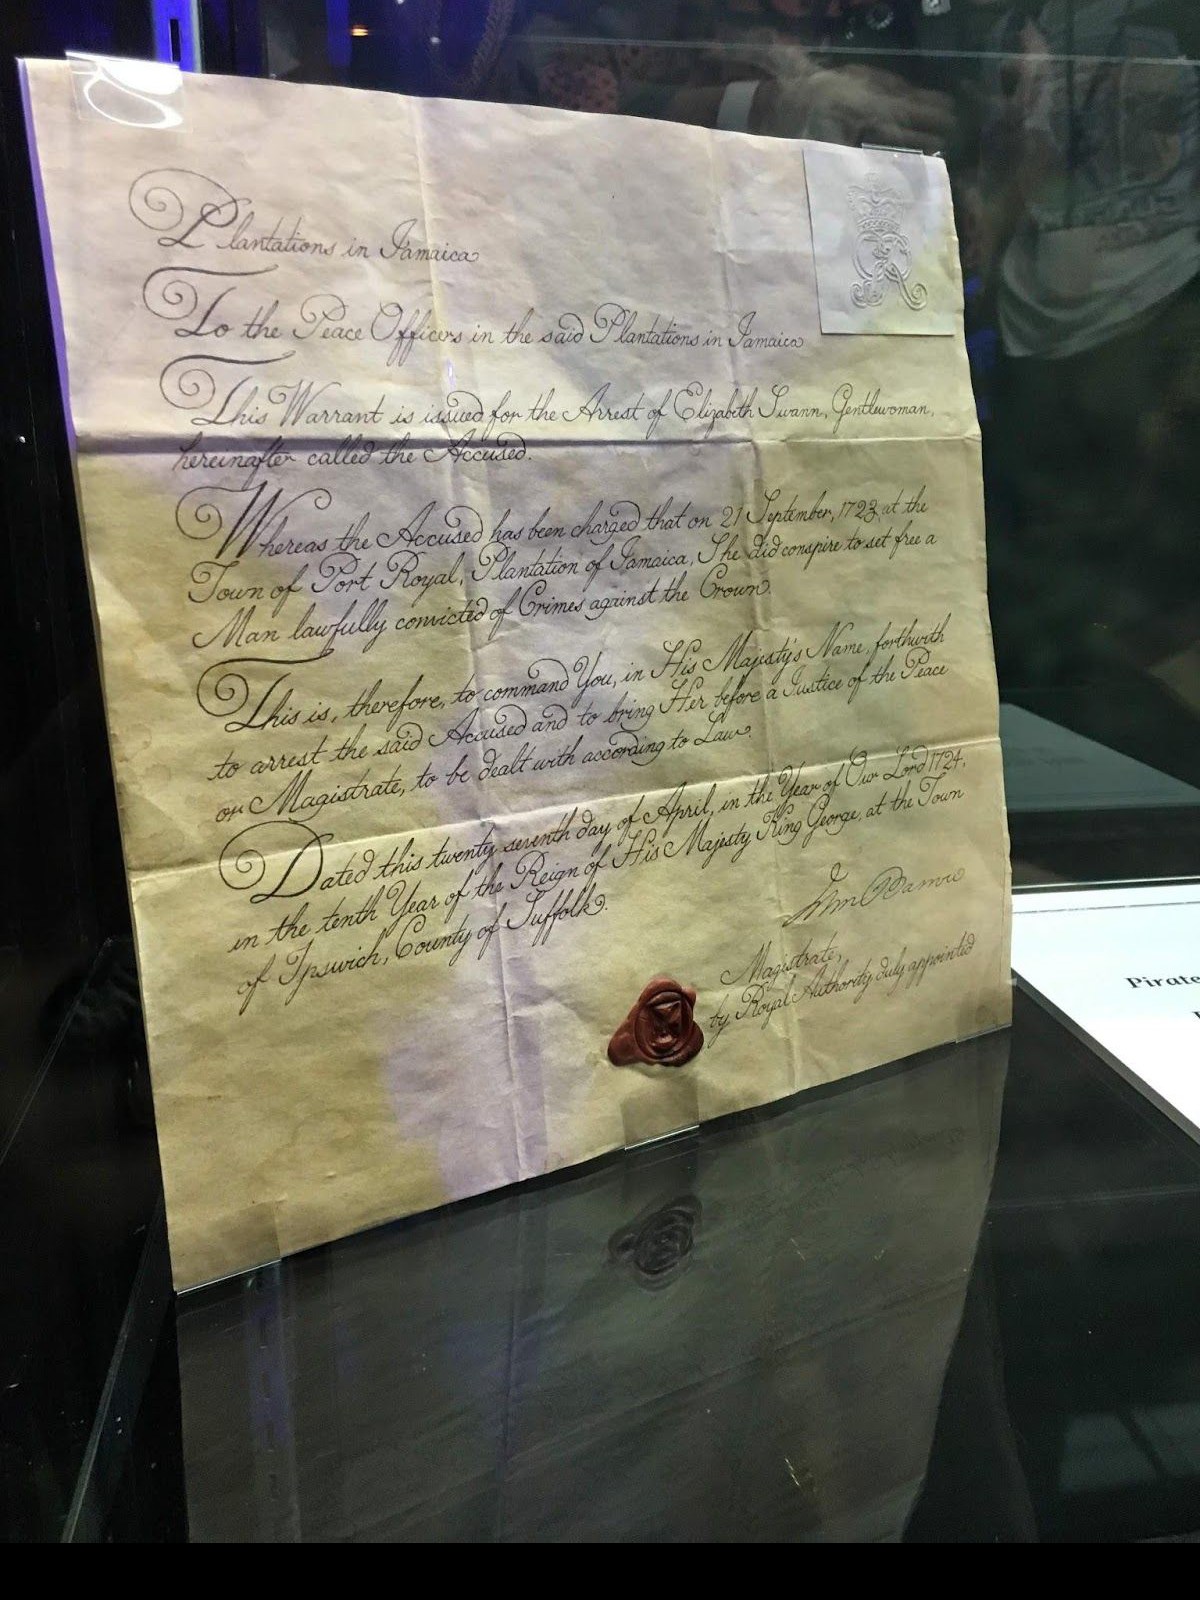 Plantations in Jamaica
To the Peace Officers in the said Plantations in Jamaica
This Warrant is issued for the Arrest of Elizabeth Swann, Gentlewoman,
hereinafter called the Accused.
Whereas the Accused has been charged that on 21 September, 1723, at the
Town of Port Royal, Plantation of Jamaica, She did conspire to set free a
Man lawfully convicted of Crimes against the Crown.
This is, therefore, to command You, in His Majesty's Name, forthwith
to arrest the said Accused and to bring Her before a Justice of the Peace
or Magistrate, to be dealt with according to Law.
Dated this twenty seventh day of April, in the Year of Our Lord 1724,
in the tenth Year of the Reign of His Majesty King George, at the Town
of Ipswich, County of Suffolk.
Magistrate,
by Royal Authority duly appointed
Pirate